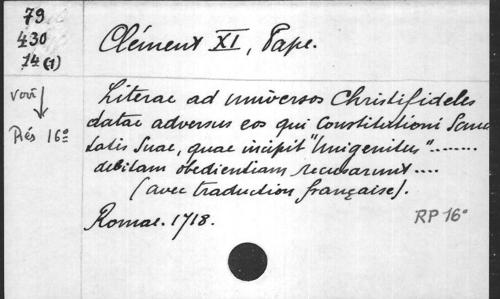 79
430
14 (1)
Clément XI, Pape.
voir
Rés 16°
Literae ad universos Christifideles
datae adversus eos qui Constitutioni Sanc
tatis Suae, quae incipit "Unigenitus"........
debitam obedientiam recusarunt....
(avec traduction française).
Romae. 1718.
RP 16°